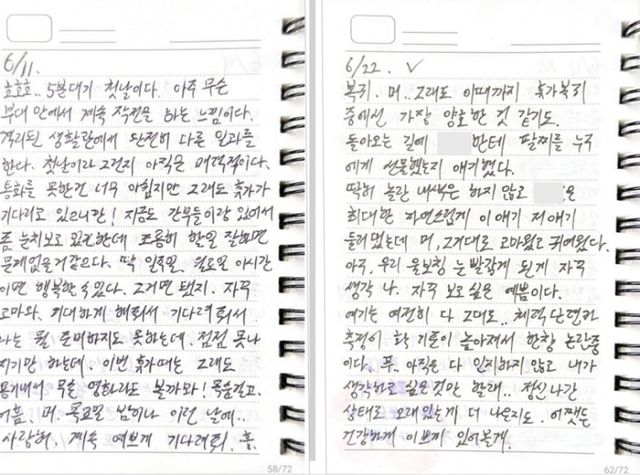 6/11.
호호호.. 5분대기 첫날이다. 아주 무슨
부대 안에서 계속 작전을 하는 느낌이다.
격리된 생활관에서 완전히 다른 일과를
한다. 첫날이라 그런지 아직은 매력적이다.
통화를 못한건 너무 아쉽지만 그래도 휴가가
기다리고 있으니깐! 지금도 간부들이랑 있어서
좀 눈치보고 있긴한데 조용히 할일 잘하면
문제없을거같은다. 딱 일주일, 월요일 이시간
이면 행복할 수 있다. 그거면 됐지. 자꾸
고마와. 기대하게 해줘서 기다려줘서
나는 뭘 준비하지도 못하는데. 점점 못나
지기만 하는데. 이번 휴가때는 그래도
용기내서 무슨 영화라도 볼까와!
어흠. 머. 목요일 밤이나 이런 날에..
사랑해, 계속 예쁘게 기다려줘. 흠.
58/72
6/22. ✓
복귀. 머.. 그래도 이때까지 휴가복귀
중에선 가장 양호한 것 같기도.
돌아오는 길에 한테 팔찌를 누구
에게 선물했는지 얘기했다.
딱히 놀란 내색은 하지 않고 은
최대한 자연스럽게 이 얘기 저 얘기
들려줬는데 머, 그거대로 고마웠고 귀여웠다.
아주, 우리 울보찡 눈 빨갛게 된게 자꾸
생각 나. 자꾸 보고싶은 예쁨이다.
여기는 여전히 다 그대로.. 체력단련카
측정이 확 기준이 높아져서 한창 논란중
이다. 푸.. 아직은 다 인지하지 않고 내가
생각하고 싶은것만 할래.. 정신나간
상태로 오래있는게 더 나은지도. 어쨋든
건강하게 이쁘게 있어볼게.
62/72